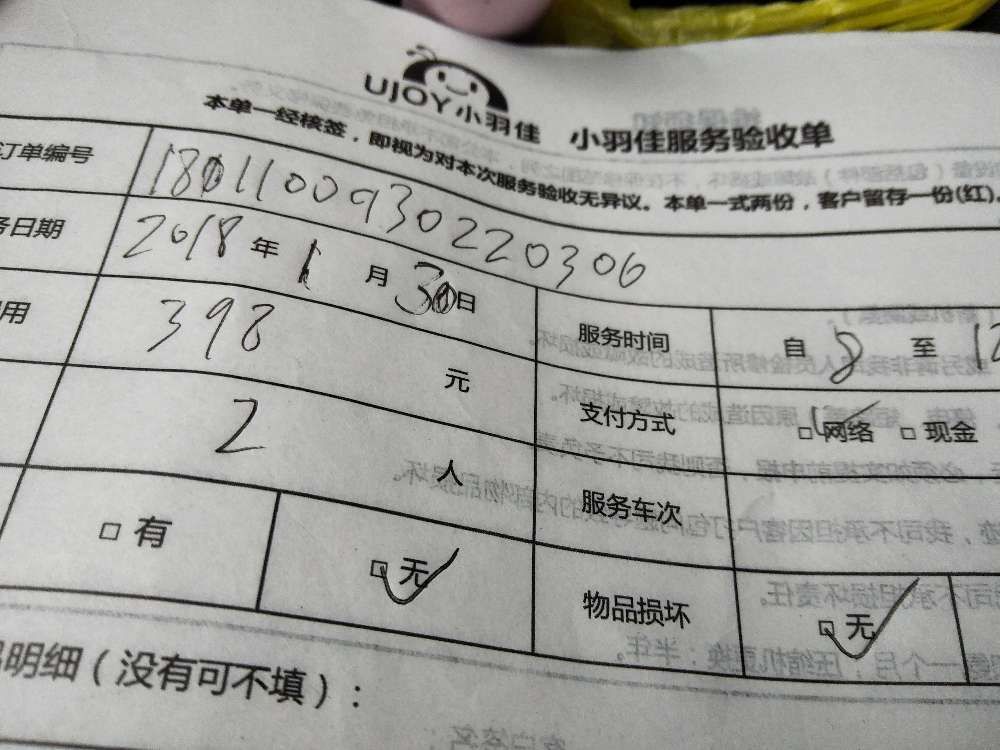 UJOY小羽佳 小羽佳服务验收单
本单一经核签，即视为对本次服务验收无异议。本单一式两份，客户留存一份(红)。
订单编号 1801100930220306
务日期 2018 年 1 月 30 日 服务时间 自 8 至 12
用 398 元 支付方式 □网络 □现金
2 人 服务车次
□有 □无 物品损坏 □无
明细（没有可不填）：